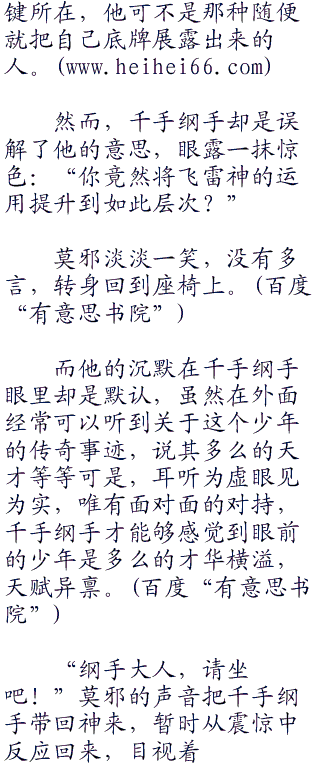 键所在，他可不是那种随便
就把自己底牌展露出来的
人。(www.heihei66.com)
然而，千手纲手却是误
解了他的意思，眼露一抹惊
色：“你竟然将飞雷神的运
用提升到如此层次？”
莫邪淡淡一笑，没有多
言，转身回到座椅上。(百度
“有意思书院”)
而他的沉默在千手纲手
眼里却是默认，虽然在外面
经常可以听到关于这个少年
的传奇事迹，说其多么的天
才等等可是，耳听为虚眼见
为实，唯有面对面的对持，
千手纲手才能够感觉到眼前
的少年是多么的才华横溢，
天赋异禀。(百度“有意思书
院”)
“纲手大人，请坐
吧！”莫邪的声音把千手纲
手带回神来，暂时从震惊中
反应回来，目视着